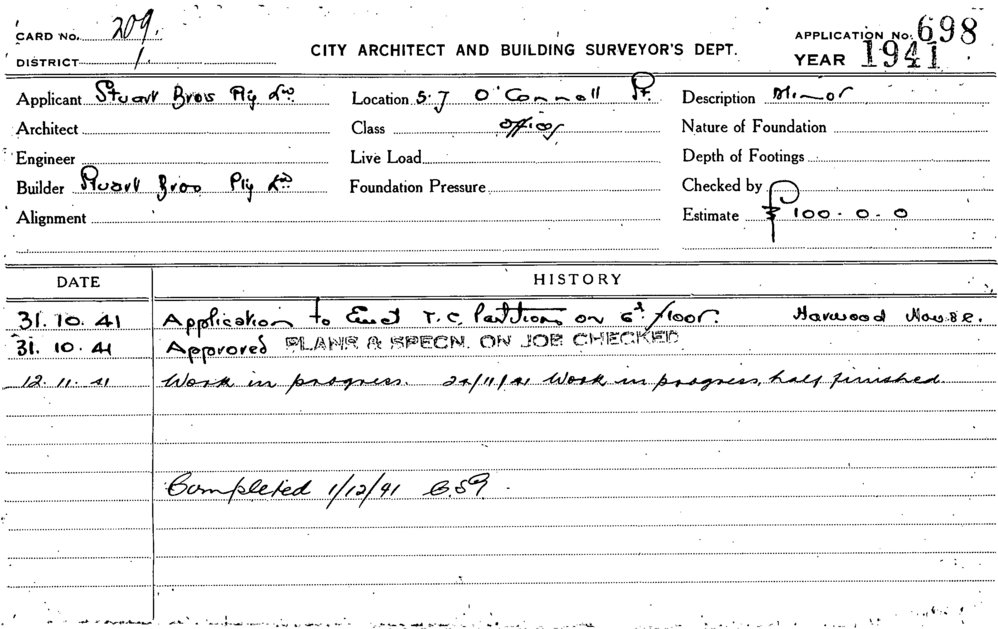 CARD NO. 209.
DISTRICT 1.
CITY ARCHITECT AND BUILDING SURVEYOR'S DEPT.
APPLICATION NO. 698
YEAR 1941
Applicant Stuart Bros Pty Ld.
Location 5-7 O'Connell St.
Description Minor
Architect
Class Offices
Nature of Foundation
Engineer
Live Load
Depth of Footings
Builder Stuart Bros Pty Ld.
Foundation Pressure
Checked by
Alignment
Estimate £ 100.0.0
DATE
HISTORY
31.10.41 Application to Erect T.C. Partitions on 6th floor. Harwood House.
31.10.41 Approved PLANS & SPECN. ON JOB CHECKED
12.11.41 Work in progress. 24/11/41 Work in progress, half finished.
Completed 1/12/41